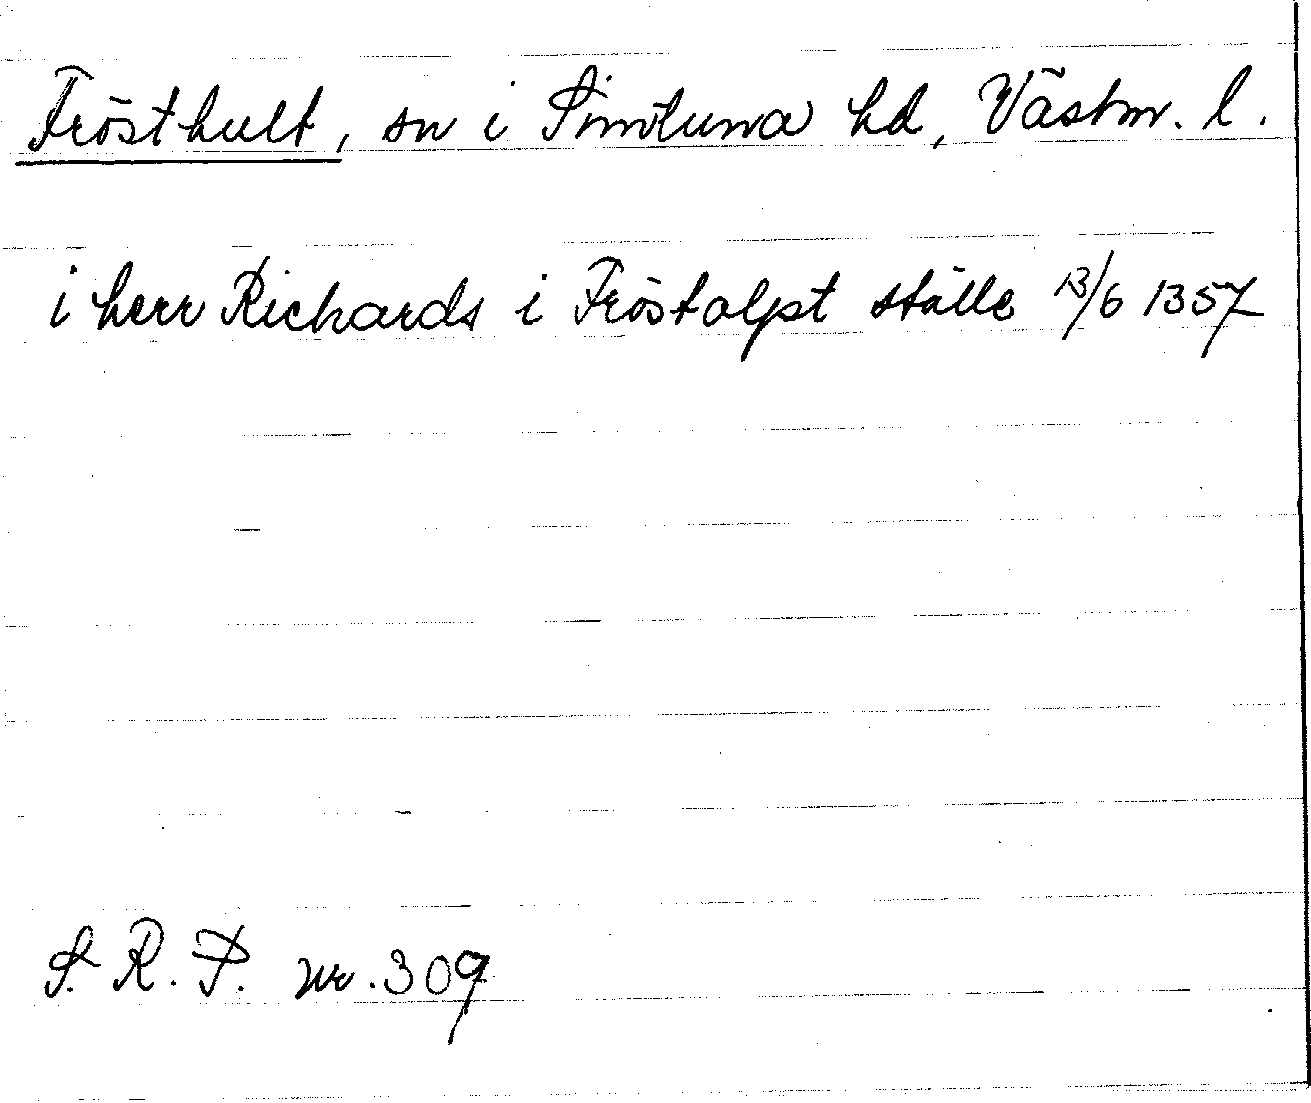 Frösthult, sn i Simtuna hd, Västm. l.
i herr Richards i Fröstolpt ställe 13/6 1357
S. R. P. nr. 309